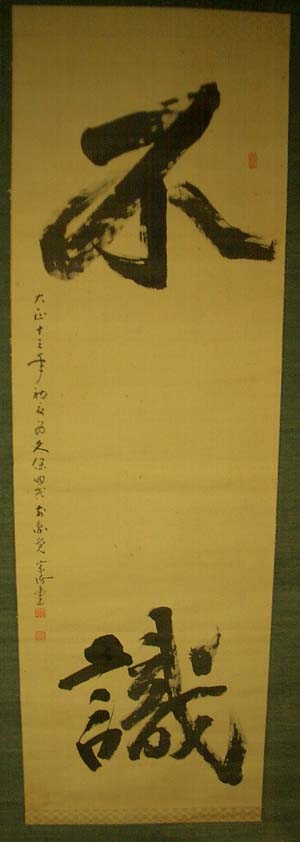 不識
大正十三年初夏為久保田氏